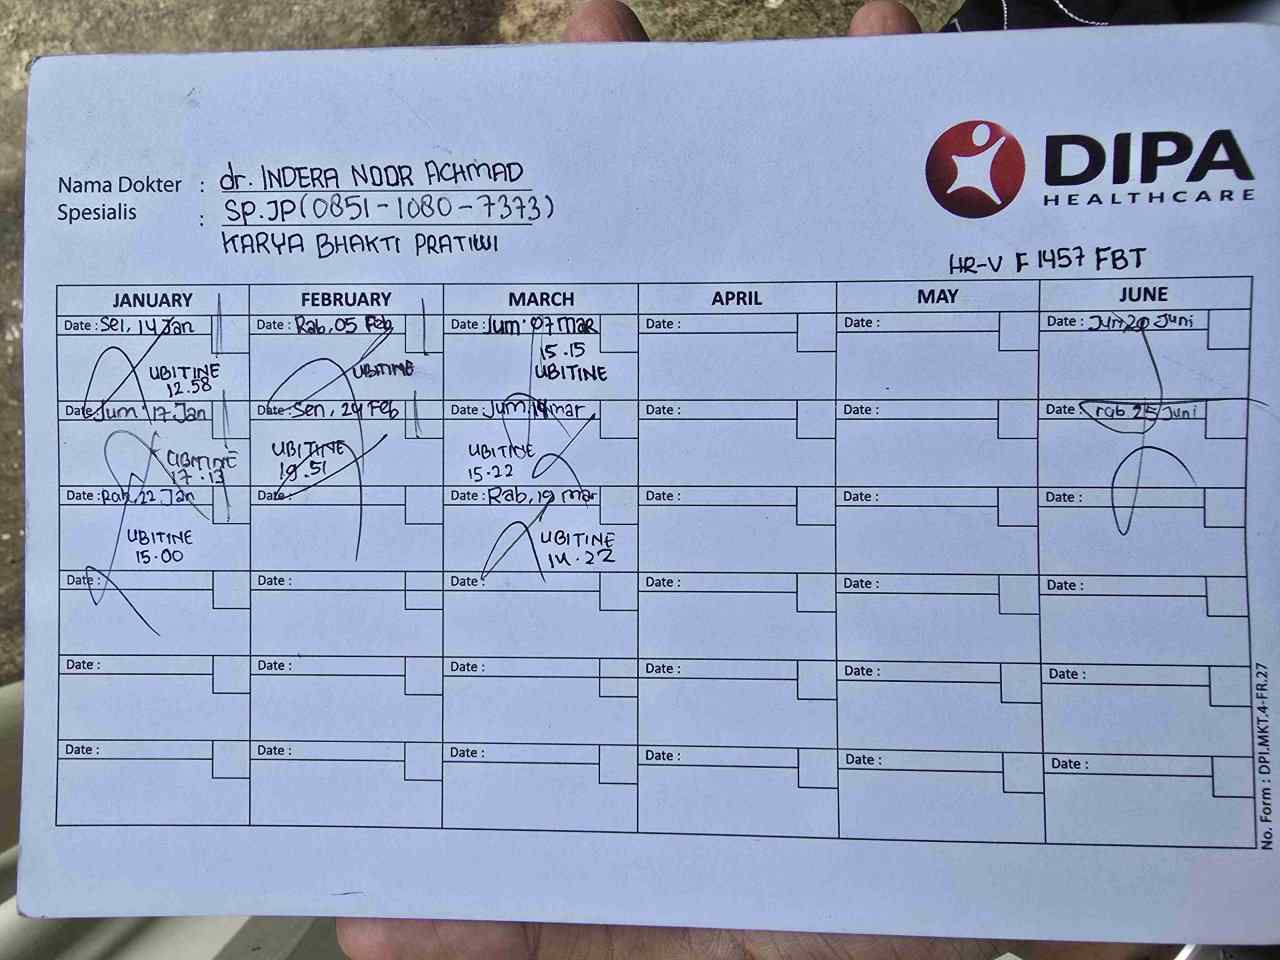 DIPA
HEALTHCARE
Nama Dokter : dr. INDERA NOOR ACHMAD
Spesialis : SP.JP(0851-1080-7373)
KARYA BHAKTI PRATIWI
HR-V F 1457 FBT
JANUARY FEBRUARY MARCH APRIL MAY JUNE
Date : Sel, 14 Jan Date : Rab, 05 Feb Date : Jum 07 Mar Date : Date : Date : Jum 20 Juni
UBITINE 12.58 UBITINE 15.15 UBITINE
Date : Jum 17 Jan Date : Sen, 24 Feb Date : Jum, 14 mar Date : Date : Date : rab 25 Juni
UBITINE 17.13 UBITINE 19.51 UBITINE 15.22
Date : Rab, 22 Jan Date : Date : Rab, 19 mar Date : Date : Date :
UBITINE 15.00 UBITINE 14.22
Date : Date : Date : Date : Date : Date :
Date : Date : Date : Date : Date : Date :
Date : Date : Date : Date : Date : Date :
No. Form : DPI.MKT.4-FR.27